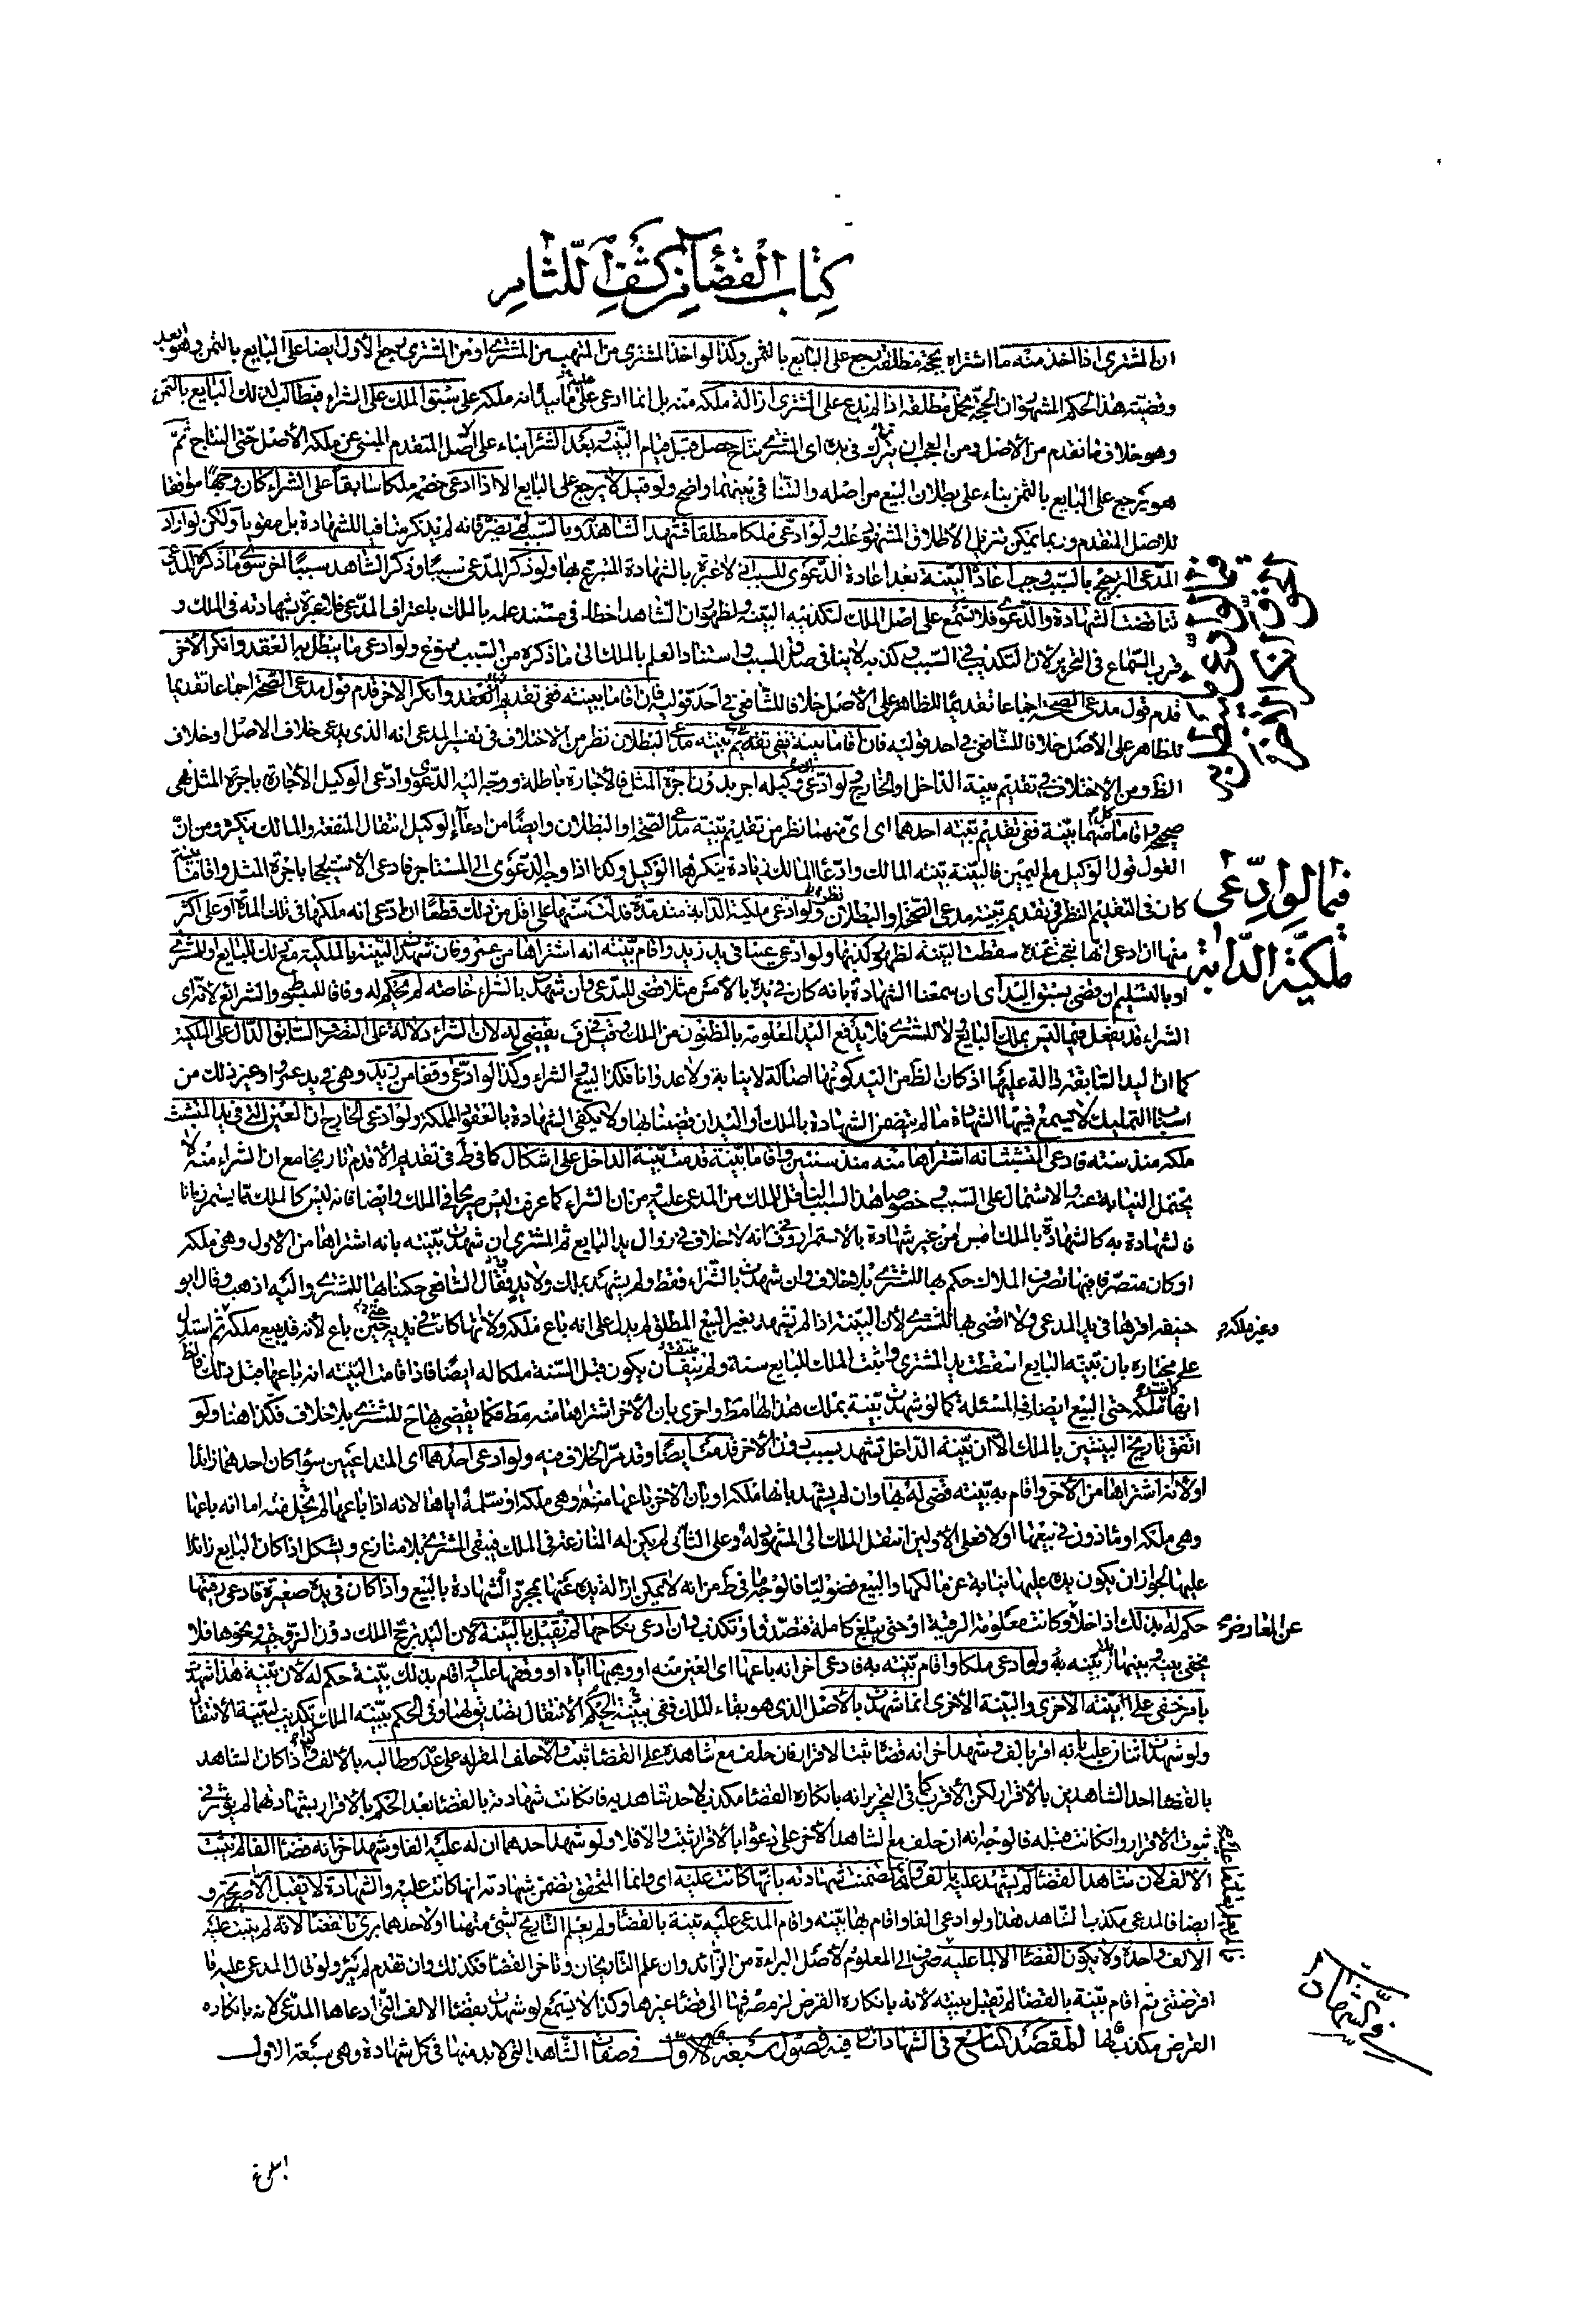 كتاب القضاء من كشف اللثام
ان المشترى اذا اخذ منه ما اشتراه بحجة مطلقة يرجع على البايع بالثمن وكذا لو اخذ المشترى من المتهب من المشترى او من المشترى يرجع الأول ايضا على البايع بالثمن وهو بعيد
وقضيته هذا الحكم المشهور ان الحجة بملك مطلقة اذا لم يدع على المشترى ازالة ملكه منه بل انما ادعى عليه ما يبد انه ملكه على سبق الملك على الشراء فيطالب لذلك البايع بالثمن
وهو خلاف ما تقدم من الاصل ومن العجب ان يترك فى يده اى المشترى نتاج حصل قبل قيام البينة وبعد الشراء بناء على الاصل المتقدم المبنى عن ملكه الأصل حتى النتاج ثم
هو يرجع على البايع بالثمن بناء على بطلان البيع من اصله والتنافى بينهما واضح ولو قيل لا يرجع على البايع الا اذا ادعى خصم ملكا سابقا على الشراء كان وجها موافقا
للاصل المتقدم وربما يمكن تنزيل الاطلاق المشهور عليه ولو ادعى ملكا مطلقا فشهد الشاهد به وبالسبب لم يضر فانه لم يذكر منافيا للشهادة بل مقويا ولكن لو اراد
المدعى الترجيح بالسبب وجب اعادة البينة بعد اعادة الدعوى للسبب اذ لا عبرة بالشهادة المتبرع بها ولو ذكر المدعى سببا وذكر الشاهد سببا اخر سوى ما ذكره المدعى
تناقضت الشهادة والدعوى فلا تسمع على اصل الملك لتكذيبه البينة ولظهور ان الشاهد اخطاء فى مستند علمه بالملك باعتراف المدعى فلا عبرة بشهادته فى الملك و
قرب السماع فى التحرير لان التكذيب فى السبب وكذبه لا ينافى صدق المسبب واستناد العلم بالملك الى ما ذكره من السبب ممنوع ولو ادعى ما يبطل به العقد وانكر الآخر
قدم قول مدعى الصحة اجماعا تقديما للظاهر على الاصل خلافا للشافعى فى احد قوليه فان اقاما بينة ففى تقديم العقد وانكر الاخر قدم قول مدعى الصحة اجماعا تقديما
للظاهر على الأصل خلافا للشافعى فى احد قوليه فان اقاما بينة ففى تقديم بينة مدعى البطلان نظر من الاختلاف فى تفسير المدعى انه الذى يدعى خلاف الاصل او خلاف
الظ ومن الاختلاف فى تقديم بينة الداخل او الخارج ولو ادعى ان وكيله اجر بدون اجرة المثل فالاجارة باطلة ووجه اليه الدعوى وادعى الوكيل الاجارة باجرة المثل فهى
صحيحة واقام كل منهما بينة ففى تقديم بينة احدهما اى اى منهما نظر من تقديم بينة مدعى الصحة او البطلان وايضا من ادعاء الوكيل انتقال المنفعة والمالك ينكره ومن ان
القول قول الوكيل مع اليمين فالبينة بينة المالك وادعاء المالك زيادة ينكرها الوكيل وكذا اذا وجه الدعوى الى المستاجر فادعى الاستيجار باجرة المثل واقاما بينة
كان فى التقديم النظر فى تقديم بينة مدعى الصحة او البطلان ولو ادعى ملكية الدابة منذ مدة فدلت سنها على اقل من ذلك قطعا ان ادعى انه ملكها فى تلك المدة او على اكثر
منها ان ادعى انها نتجت عنده سقطت البينة لظهور كذبها ولو ادعى عينا فى يد زيد واقام بينة انه اشتراها من عمرو فان شهدت البينة بالملكية مع ذلك للبايع او للمشترى
او بالتسليم ان قضى بسبق اليد اى ان سمعنا الشهادة بانه كان فى يده بالامس مثلا قضى للمدعى وان شهدت بالشراء خاصة لم يحكم له وفاقا للمبسوط والشرايع لانه اى
الشراء قد يفعل فيما ليس بملك البايع ولا للمشترى فلا يدفع اليد المعلومة بالمظنون من الملك وفى الخلاف يقضى له لان الشراء دلالة على التصرف السابق الدال على الملكية
كما ان اليد السابقة دالة عليها اذ كان الظ من اليد كونها اصالة لا نيابة ولا عدوانا فكذا البيع والشراء وكذا لو ادعى وقفا من زيد وهى فى يد عمرو او غير ذلك من
اسباب التمليك لا يسمع فيها الشهادة ما لم يتضمن الشهادة بالملك او اليد ان قضينا بها ولا يكفى الشهادة بالعقود المملكة ولو ادعى الخارج ان العين التى فى يد المتشبث
ملكه منذ سنة فادعى المتشبث انه اشتراها منه منذ سنتين واقاما بينة قدمت بينة الداخل على اشكال كما فى ط فى تقديم الاقدم تاريخا مع ان الشراء منه لا
يحتمل النيابة عنه والاشتمال على السبب وخصوصا هذا السبب الناقل للملك من المدعى عليه ومن ان الشراء كما عرفت ليس صريحا فى الملك وايضا فانه ليس كالملك مما يستمر زمانا
فالشهادة به كالشهادة بالملك امس من غير شهادة بالاستمرار وفى ف انه لا خلاف فى زوال يد البايع ثم المشترى ان شهدت بينته بانه اشتراها من الاول وهى ملكه
او كان متصرفا فيها تصرف الملاك حكم بها للمشترى بلا خلاف وان شهدت بالشراء فقط ولم يشهد بملك ولا يد فقال الشافعى حكمنا بها للمشترى واليه اذهب وقال ابو
حنيفة اقرها فى يد المدعى ولا اقضى بها للمشترى لان البينة اذا لم تشهد بغير البيع المطلق لم يدل على انه باع ملكه ولا انها كانت فى يديه حين باع لانه قد يبيع ملكه ثم استدل
وغير ملكه
على مختاره بان بينة البايع اسقطت يد المشترى واثبت الملك للبايع سنة ولم ينف ان يكون قبل السنة ملكا له ايضا فاذا قامت البينة انه باعها قبل ذلك فالظ
انها ملكه حتى البيع ايضا فالمسئلة كما لو شهدت بينة بملك هذا لها مط واخرى بان الاخر اشتراها منه مط فكما يقضى بها ح للمشترى بلا خلاف فكذا هنا ولو
اتفق تاريخ البينتين بالملك الا ان بينة الداخل تشهد بسبب دون الاخر قدمت ايضا وقد مر الخلاف فيه ولو ادعى احدهما اى المتداعيين سواء كان احدهما ذا يد
او لا انه اشتراها من الآخر واقام به بينة قضى له بها وان لم يشهد بانها ملكه او بان الاخر باعها منه وهى ملكه او سلمه اياها لانه اذا باعها لم يخل منه اما انه باعها
وهى ملكه او ماذون فى بيعها او لا فعلى الاولين انتقل الملك الى المشهود له وعلى الثانى لم يكن له المنازعة فى الملك فيبقى المشترى بلا منازع ويشكل اذا كان البايع ذا يد
عليها لجواز ان يكون يده عليها نيابة عن مالكها والبيع فضوليا فالوجه ما فى ط من انه لا يمكن ازالة يده عنها بمجرد الشهادة بالبيع واذا كان فى يده صغيرة فادعى رقيتها
حكم له بذلك اذا خلا وكانت معلومة الرقية او حتى يبلغ كاملة فتصدق او تكذب وان ادعى نكاحها لم يقبل الا بالبينة لان اليد يرجح الملك دون الزوجية ونحوها فلا
عن المعارض
يخفى بينه وبينها الا ببينة به ولو ادعى ملكا واقام بينة به فادعى اخر انه باعها اى العين منه او وهبها اياه او وقفها عليه واقام بذلك بينة حكم له لان بينة هذا شهدت
بامر خفى على البينة الاخرى والبينة الاخرى انما شهدت بالاصل الذى هو بقاء الملك ففى الحكم ببينة الانتقال تصديق لهما وفى الحكم ببينة الملك تكذيب لبينة الانتقال
ولو شهد اثنان عليه بانه اقر بالف وشهد اخر انه قضاه ثبت الاقرار فان حلف مع شاهده على القضاء ثبت والا حلف المقر له على عدمه وطالبه بالالف واذا كان الشاهد
بالقضاء احد الشاهدين بالاقرار لكن الاقرب كما فى التحرير انه بانكاره القضاء مكذب لاحد شاهديه فان كانت شهادته بالقضاء بعد الحكم بالاقرار بشهادتهما لم يؤثر فى
ثبوت الاقرار وان كانت قبله فالوجه انه ان حلف مع الشاهد الآخر على دعواه بالاقرار ثبت والا فلا ولو شهد احدهما ان له عليه الفا وشهد اخر انه قضاه الفا لم يثبت
الالف لان شاهد القضاء لم يشهد عليه بالف وانما تضمنت شهادته بانها كانت عليه اى وانما المتحقق تضمن شهادته انها كانت عليه والشهادة لا تقبل الا صريحة و
ايضا فالمدعى مكذب لشاهد هذا ولو ادعى الفا واقام بها بينة واقام المدعى عليه بينة بالقضاء ولم يعلم التاريخ لشئ منهما او لاحدهما برئ بالقضاء لانه لم يثبت عليه
الا الف واحدة ولا يكون القضاء الا لما عليه صرف الى المعلوم لاصل البراءة من الزائد وان علم التاريخان وتاخر القضاء فكذلك وان تقدم لم يبرء ولو قال المدعى عليه ما
اقرضتنى ثم اقام بينة بالقضاء لم تقبل بينته لانه بانكاره القرض لزم صرفها الى قضاء غيرها وكذا لا يسمع لو شهدت بقضاء الالف التى ادعاها المدعى لانه بانكاره
القرض مكذب لها المقصد التاسع فى الشهادات وفيه فصول سبعة الاول فى صفات الشاهد التى لا بد منها فى كل شهادة وهى سبعة الاول
فيما لو ادعى
ملكية الدابة
فى الشهادات
البلوغ